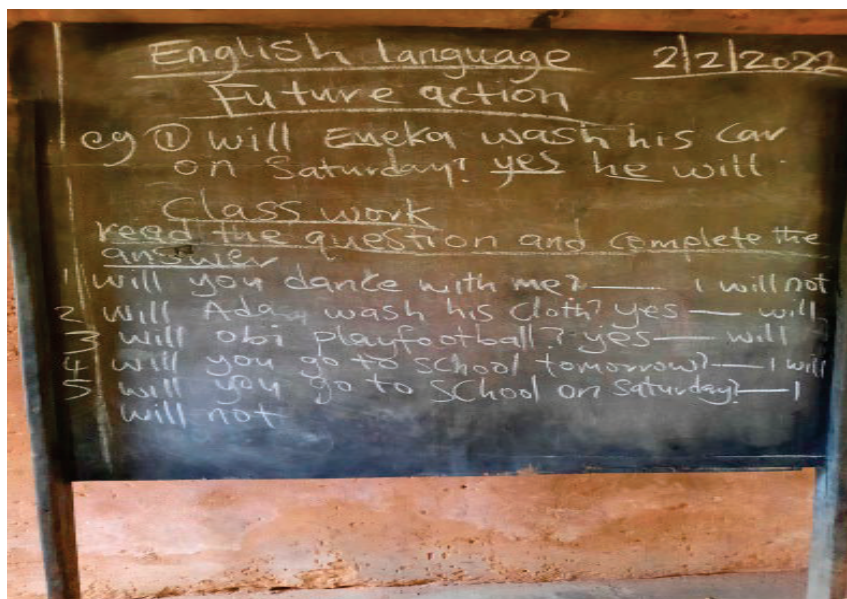 English language 2/2/2022
Future action
eg ① will Emeka wash his car
on Saturday? yes he will
Class work
read the question and complete the
answer
1 will you dance with me? — I will not
2 will Ada wash his cloth? yes — will
3 will obi playfootball? yes — will
4 will you go to school tomorrow? — I will
5 will you go to SChool on Saturday? — I
will not